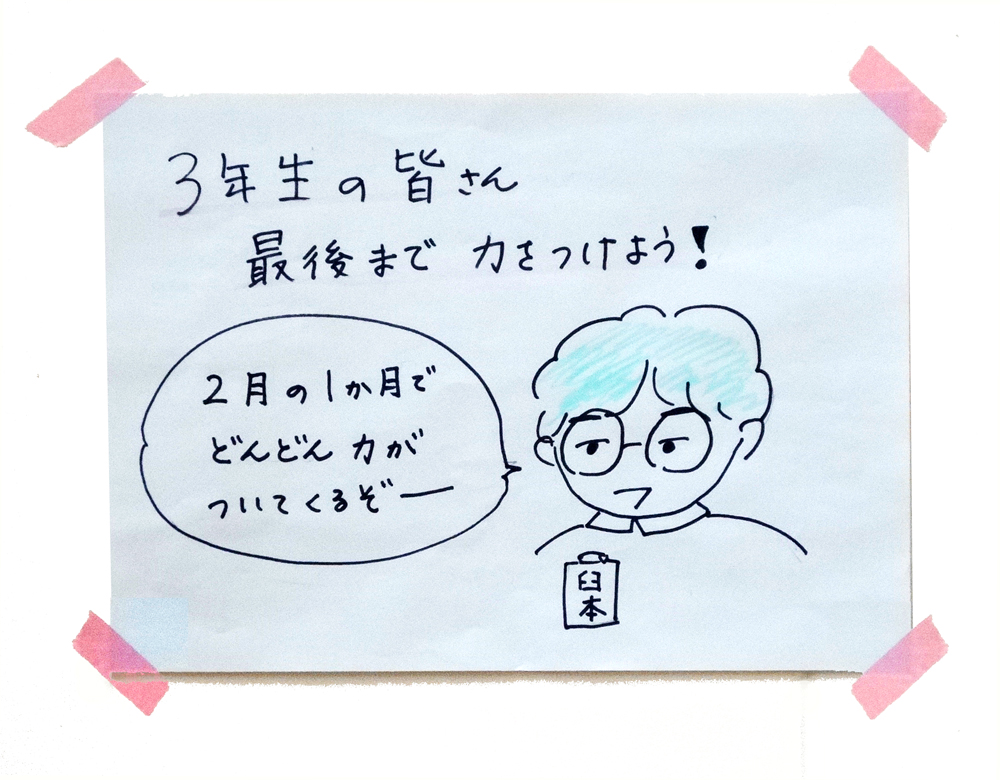 3年生の皆さん
最後まで力をつけよう!
2月の1か月で
どんどん力が
ついてくるぞー
臼本